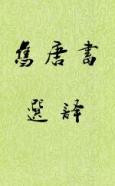 舊唐書
選譯